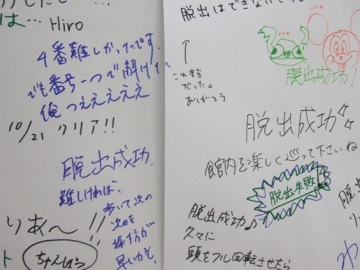 は… Hiro
4番難しかったです。
でも番号一つで解けた
俺つええええええ
10/21 クリア!!
脱出成功
難しければ、
歩いて次の
次のを
探す方が
早いかも。
りあ〜!!
ト ちゃんほう
脱出はできな
↑
これ本当
だった。
ありがとう
脱出成功!
脱出成功
館内を楽しく巡って下さいね
脱出失敗
脱出成功♪
久々に
頭をフル回転させたら